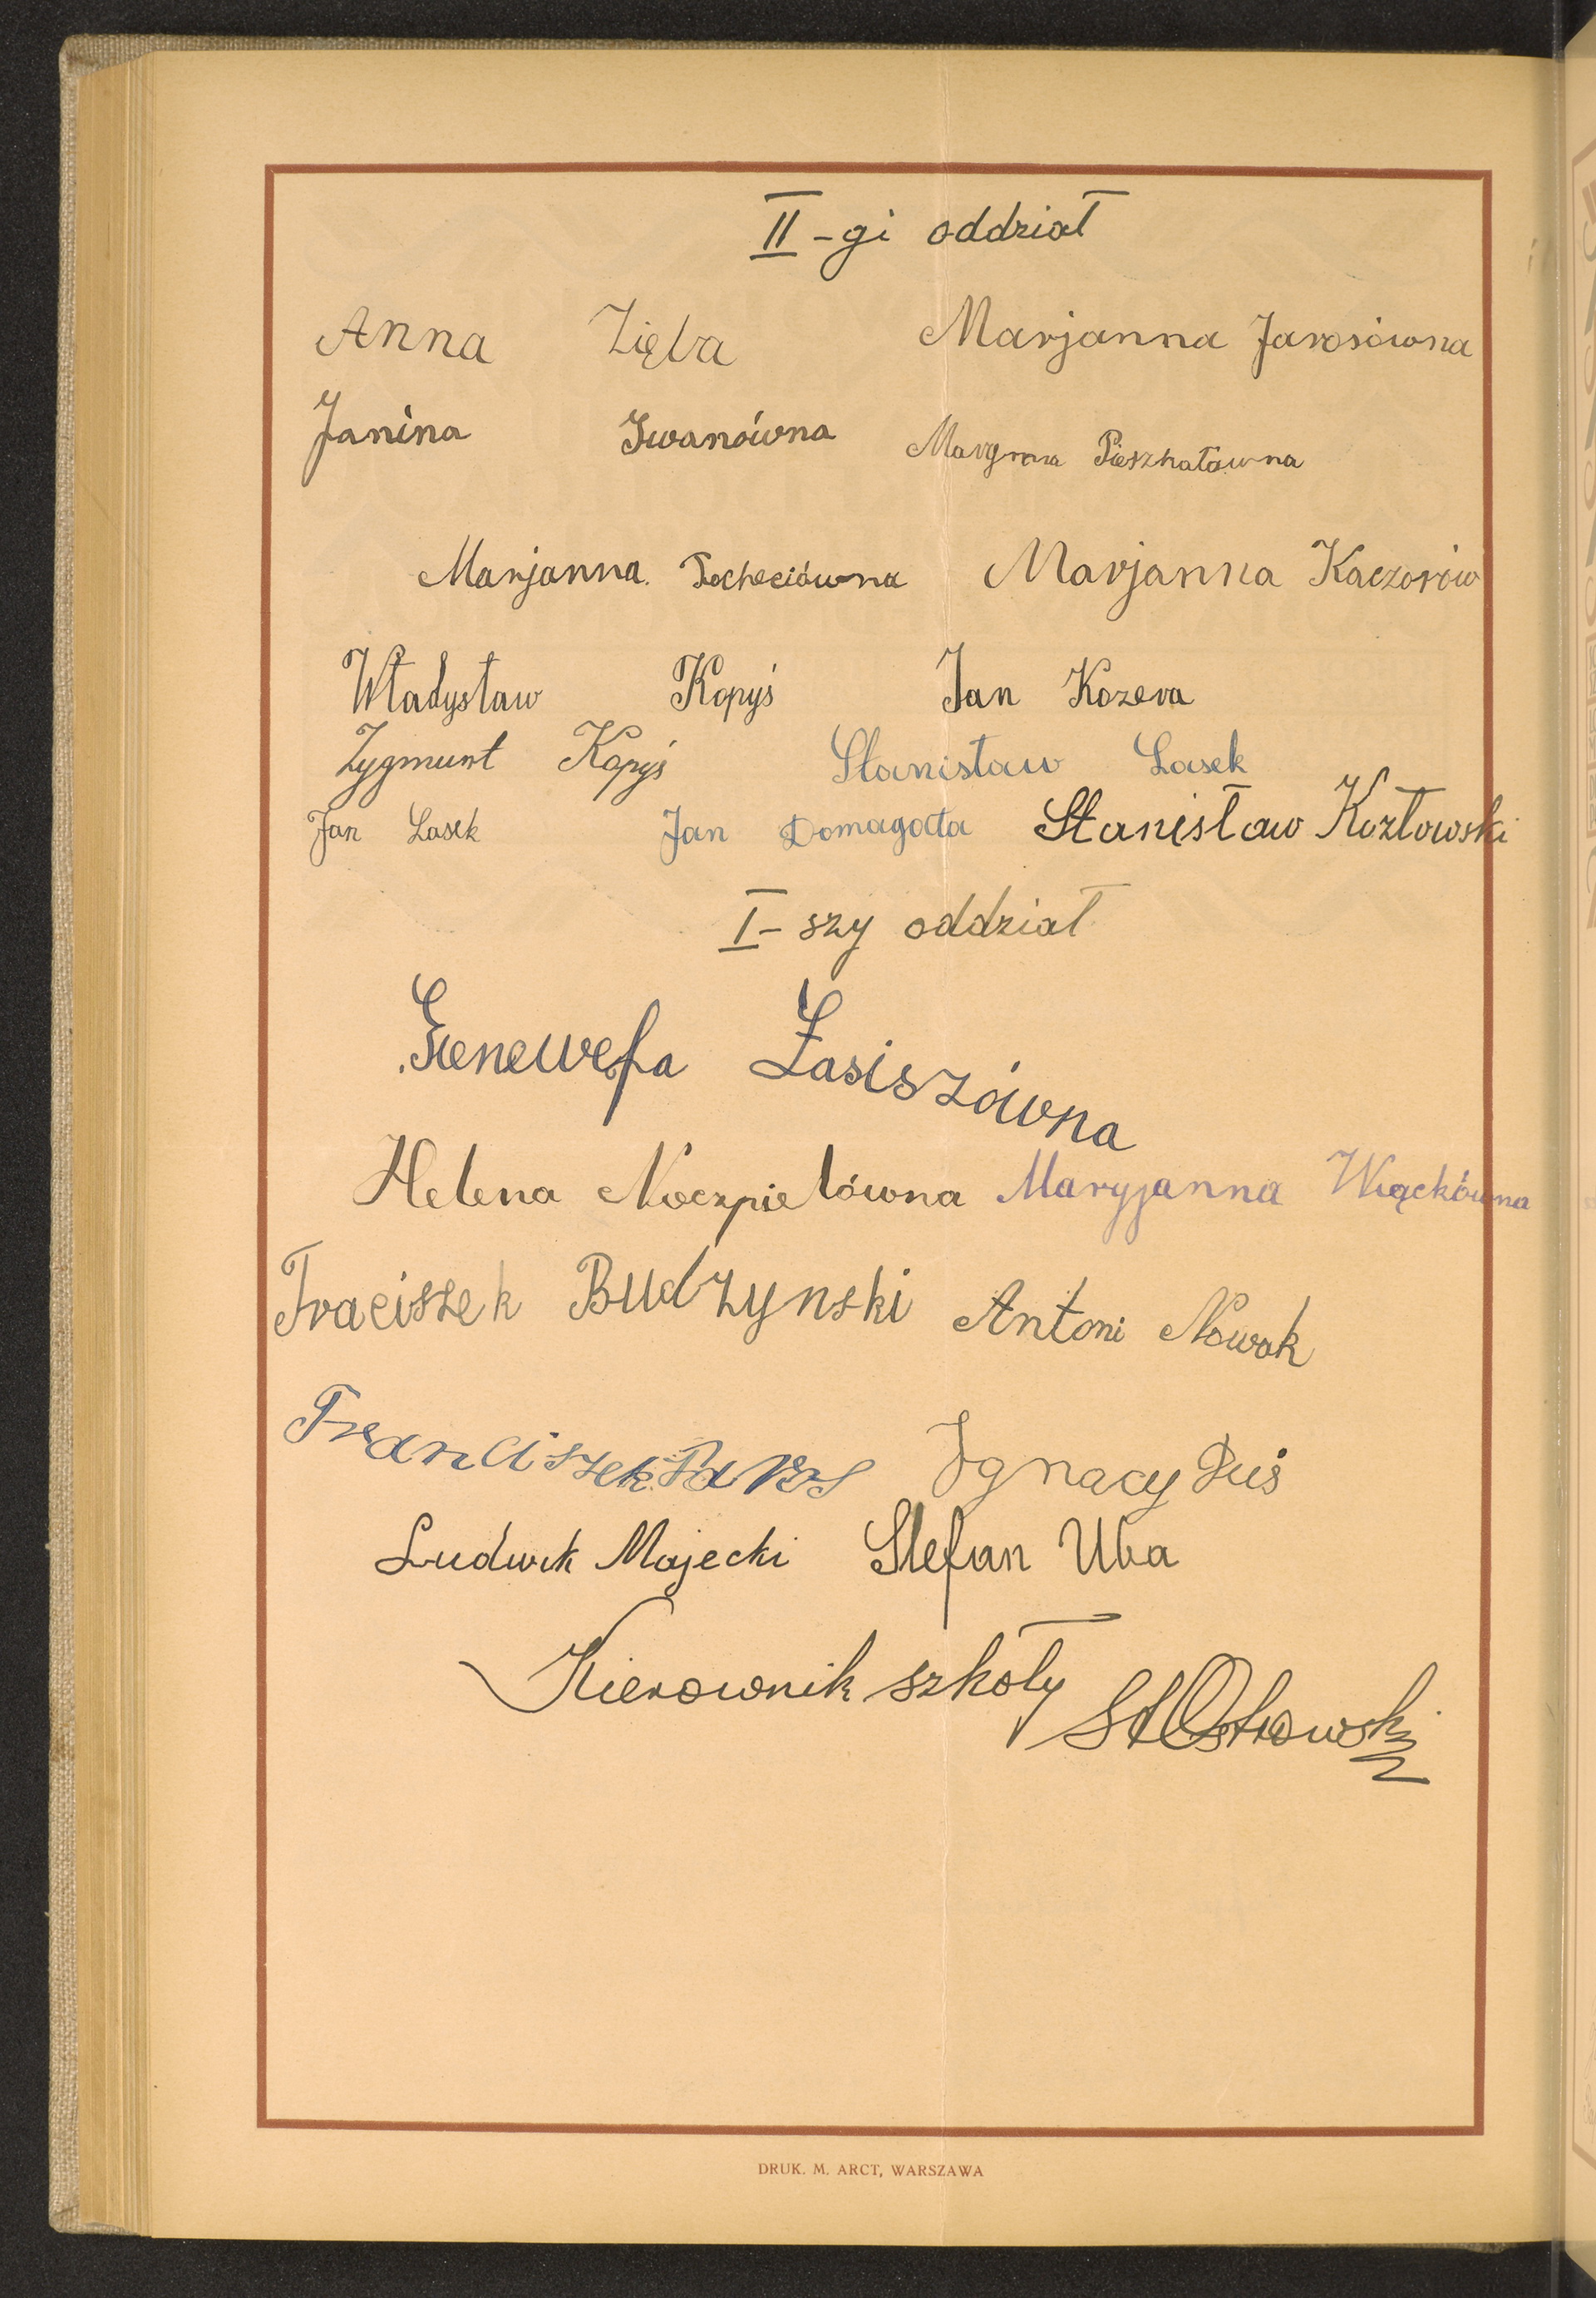 II-gi oddział
Anna Zięba Marjanna Jarosówna
Janina Iwanówna Marynna Pieszkatówna
Marjanna Pocheciówna Marjanna Kaczorów
Władysław Kopyś Jan Kozera
Zygmunt Kopyś Stanisław Lasek
Jan Lasek Jan Domagała Stanisław Kozłowski
I-szy oddział
Genewefa Łasiszówna
Helena Niecpielówna Maryjanna Wiąckówna
Fraciszek Budzynski Antoni Nowak
Franciszek Ignacy Puś
Ludwik Majecki Stefan Uba
Kierownik szkoły St Ostrowski
DRUK. M. ARCT, WARSZAWA